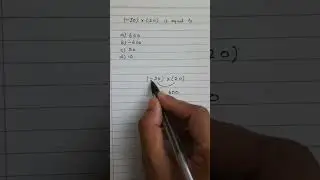 (-30) x (20) is equal to
a) 600
b) -600
c) 50
d) 10
(-30) x (20)
600